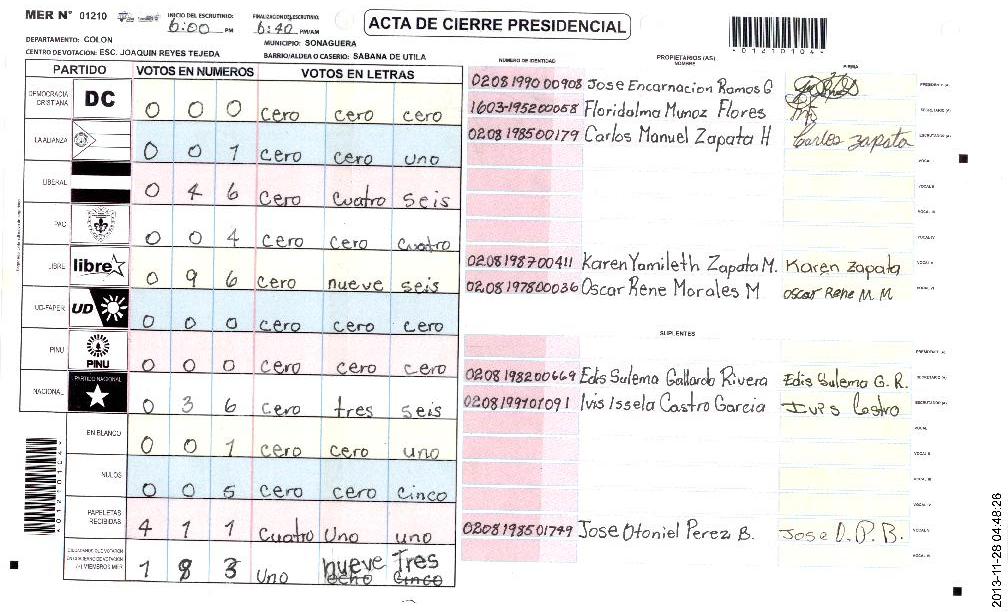 MER N° 01210 INICIO DEL ESCRUTINIO: 6:00 PM FINALIZACION DEL ESCRUTINIO: 6:40 PM/AM
ACTA DE CIERRE PRESIDENCIAL
*01210104*
DEPARTAMENTO: COLON MUNICIPIO: SONAGUERA
CENTRO DE VOTACION: ESC. JOAQUIN REYES TEJEDA BARRIO/ALDEA O CASERIO: SABANA DE UTILA
NUMERO DE IDENTIDAD PROPIETARIOS (AS) NOMBRE FIRMA
PARTIDO VOTOS EN NUMEROS VOTOS EN LETRAS
DEMOCRACIA CRISTIANA DC 0 0 0 cero cero cero
LA ALIANZA 0 0 1 cero cero uno
LIBERAL 0 4 6 cero cuatro seis
PAC 0 0 4 cero cero cuatro
LIBRE libre 0 9 6 cero nueve seis
UD-FAPER UD 0 0 0 cero cero cero
PINU PINU 0 0 0 cero cero cero
NACIONAL PARTIDO NACIONAL 0 3 6 cero tres seis
EN BLANCO 0 0 1 cero cero uno
NULOS 0 0 5 cero cero cinco
PAPELETAS RECIBIDAS 4 1 1 cuatro Uno uno
(+) MIEMBROS MER 1 3 Uno nueve Tres
ocho cinco
0208199000908 Jose Encarnacion Ramos G PRESIDENTE (A)
1603-195200058 Floridalma Munoz Flores SECRETARIO (A)
0208198500179 Carlos Manuel Zapata H Carlos Zapata ESCRUTADOR (A)
VOCAL I
VOCAL II
VOCAL III
VOCAL IV
0208198700411 Karen Yamileth Zapata M. Karen Zapata VOCAL V
0208197800036 Oscar Rene Morales M Oscar Rene M. M VOCAL VI
SUPLENTES
PRESIDENTE (A)
0208198200669 Edis Sulema Gallardo Rivera Edis Sulema G. R. SECRETARIO (A)
0208199101091 Ivis Issela Castro Garcia Ivis Castro ESCRUTADOR (A)
VOCAL I
VOCAL II
VOCAL III
VOCAL IV
0208198501749 Jose Otoniel Perez B. Jose O. P. B. VOCAL V
VOCAL VI
*01210104*
2013-11-28 04:48:26